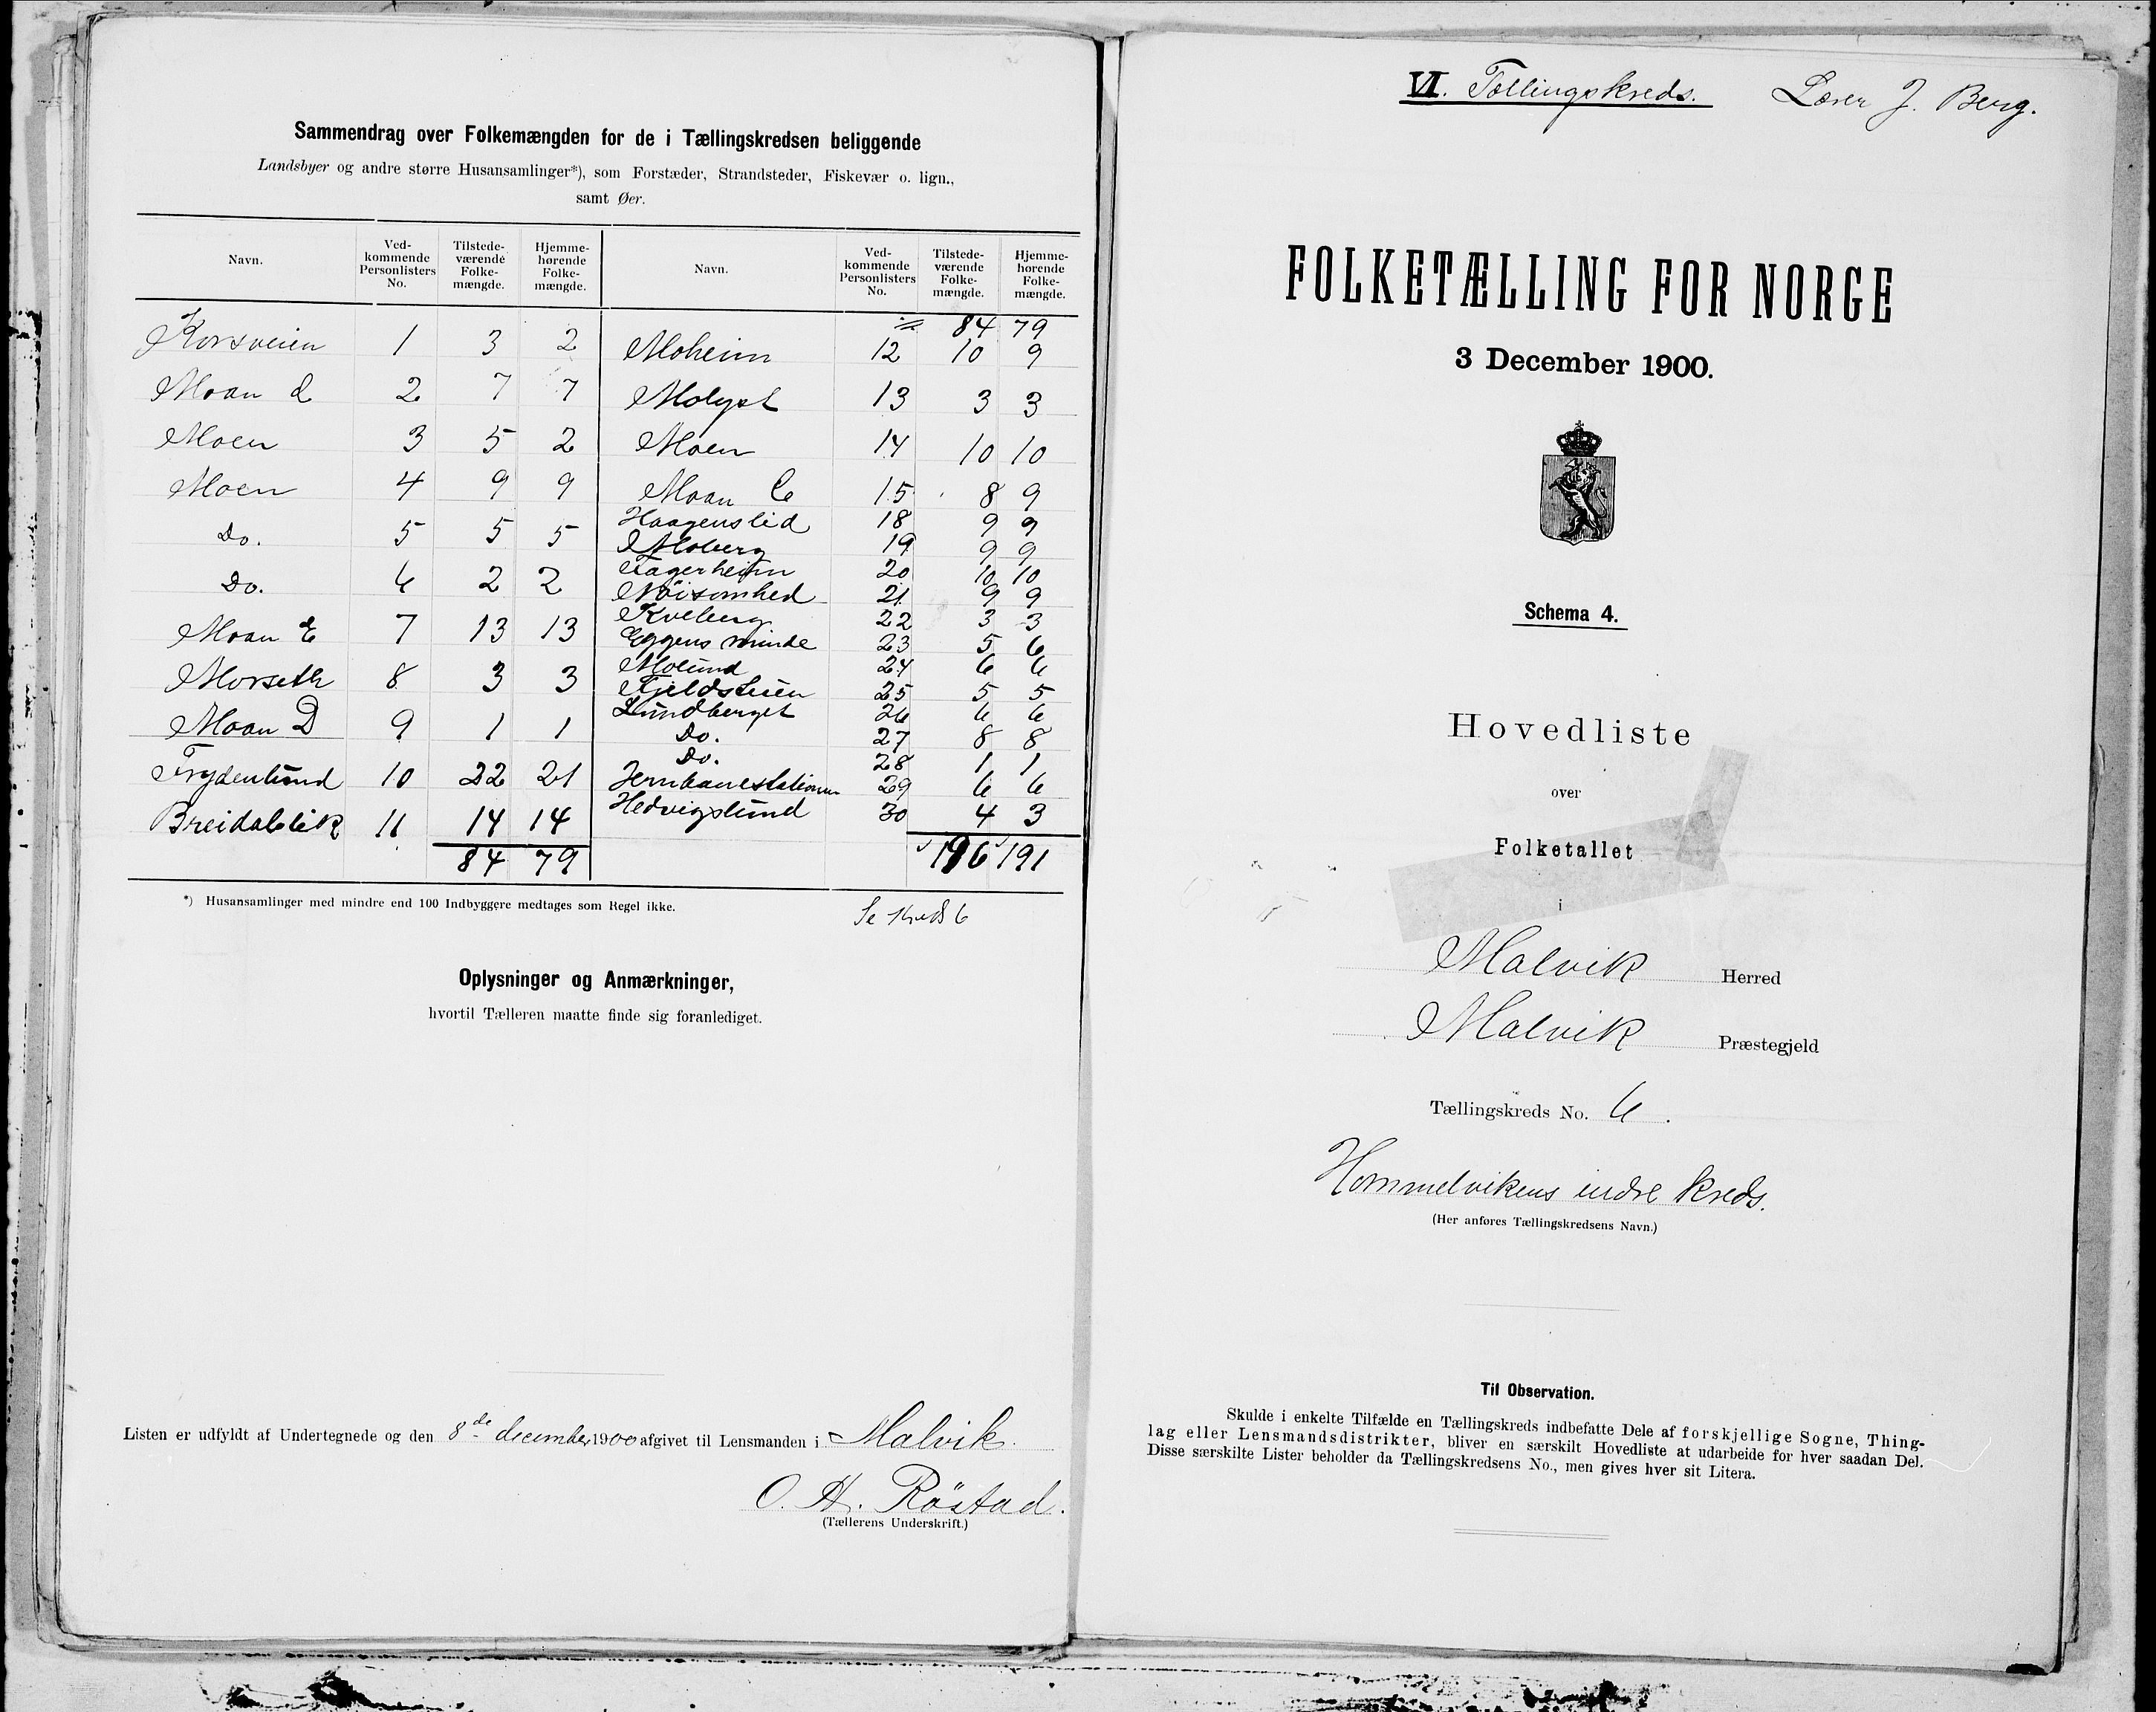 Sammendrag over Folkemængden for de i Tællingskredsen beliggende
Landsbyer og andre større Husansamlinger*), som Forstæder, Strandsteder, Fiskevær o. lign.,
samt Øer.
Navn. Ved-kommende Personlisters No. Tilstede-værende Folke-mængde. Hjemme-hørende Folke-mængde. Navn. Ved-kommende Personlisters No. Tilstede-værende Folke-mængde. Hjemme-hørende Folke-mængde.
84 79
Korsveien 1 3 2 Moheim 12 10 9
Moan d 2 7 7 Molyst 13 3 3
Moen 3 5 2 Moen 14 10 10
Moen 4 9 9 Moan C 15 8 9
Do. 5 5 5 Haagenslid 18 9 9
Moberg 19 9 9
Do. 6 2 2 Fagerheim 20 10 10
Nöisomhed 21 9 9
Moan E 7 13 13 Kveberg 22 3 3
Eggens minde 23 5 6
Morseth 8 3 3 Molund 24 6 6
Fjeldstuen 25 5 5
Moan D 9 1 1 Lundberget 26 6 6
Do. 27 8 8
Frydenlund 10 22 21 Do. 28 1 1
Jernbanestationen 29 6 6
Breidablik 11 14 14 Hedvigslund 30 4 3
84 79 196 191
*) Husansamlinger med mindre end 100 Indbyggere medtages som Regel ikke.
Se Kreds 6
Oplysninger og Anmærkninger,
hvortil Tælleren maatte finde sig foranlediget.
Listen er udfyldt af Undertegnede og den 8de december 1900 afgivet til Lensmanden i Malvik.
O. A. Röstad.
(Tællerens Underskrift.)
VI. Tællingskreds. Lærer J. Berg.
FOLKETÆLLING FOR NORGE
3 December 1900.
Schema 4.
Hovedliste
over
Folketallet
i
Malvik Herred
Malvik Præstegjeld
Tællingskreds No. 6.
Hommelvikens indre kreds.
(Her anføres Tællingskredsens Navn.)
Til Observation.
Skulde i enkelte Tilfælde en Tællingskreds indbefatte Dele af forskjellige Sogne, Thing-
lag eller Lensmandsdistrikter, bliver en særskilt Hovedliste at udarbeide for hver saadan Del.
Disse særskilte Lister beholder da Tællingskredsens No., men gives hver sit Litera.